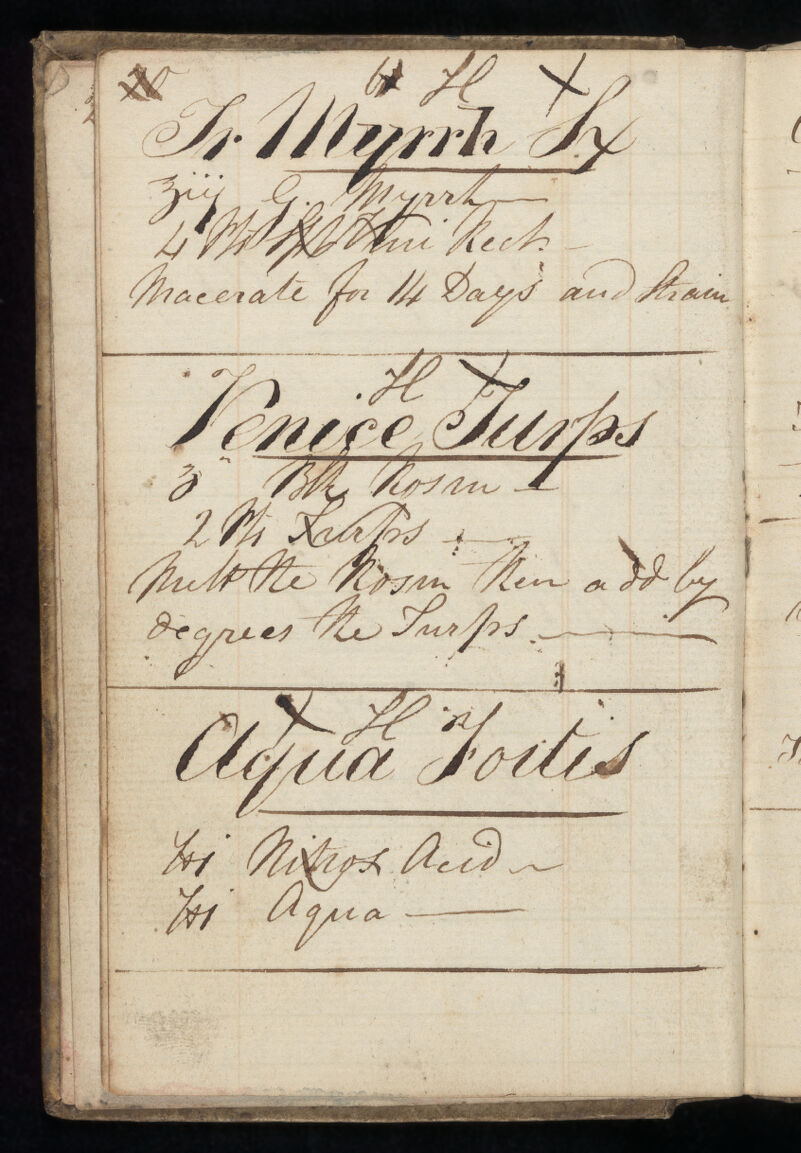 H
Tr. Myrrh Sx
ʒiij G. Myrrh
4 Pts Vini Rect
Macerate for 14 Days and Strain
H
Venice Turps
Blk Rosin
2 Pts Turps
Melt the Rosin then add by
degrees the Turps
H
Aqua Fortis
℔i Nitros Acid
℔i Aqua